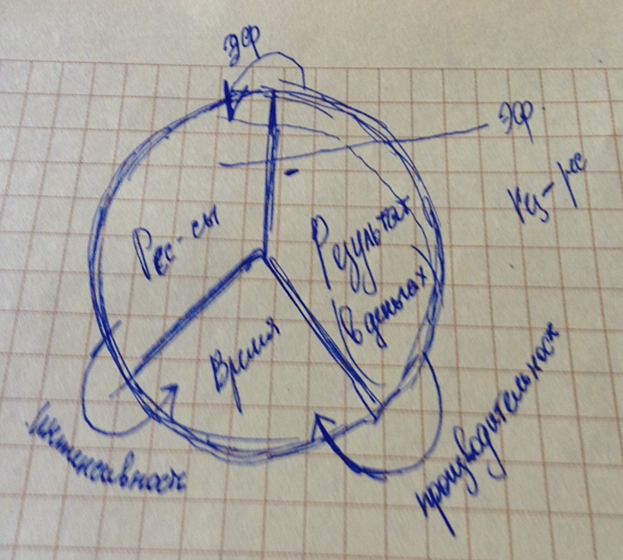 эф
эф.
Рес-сы
Результат
в деньгах
Время
интенсивность
производительность